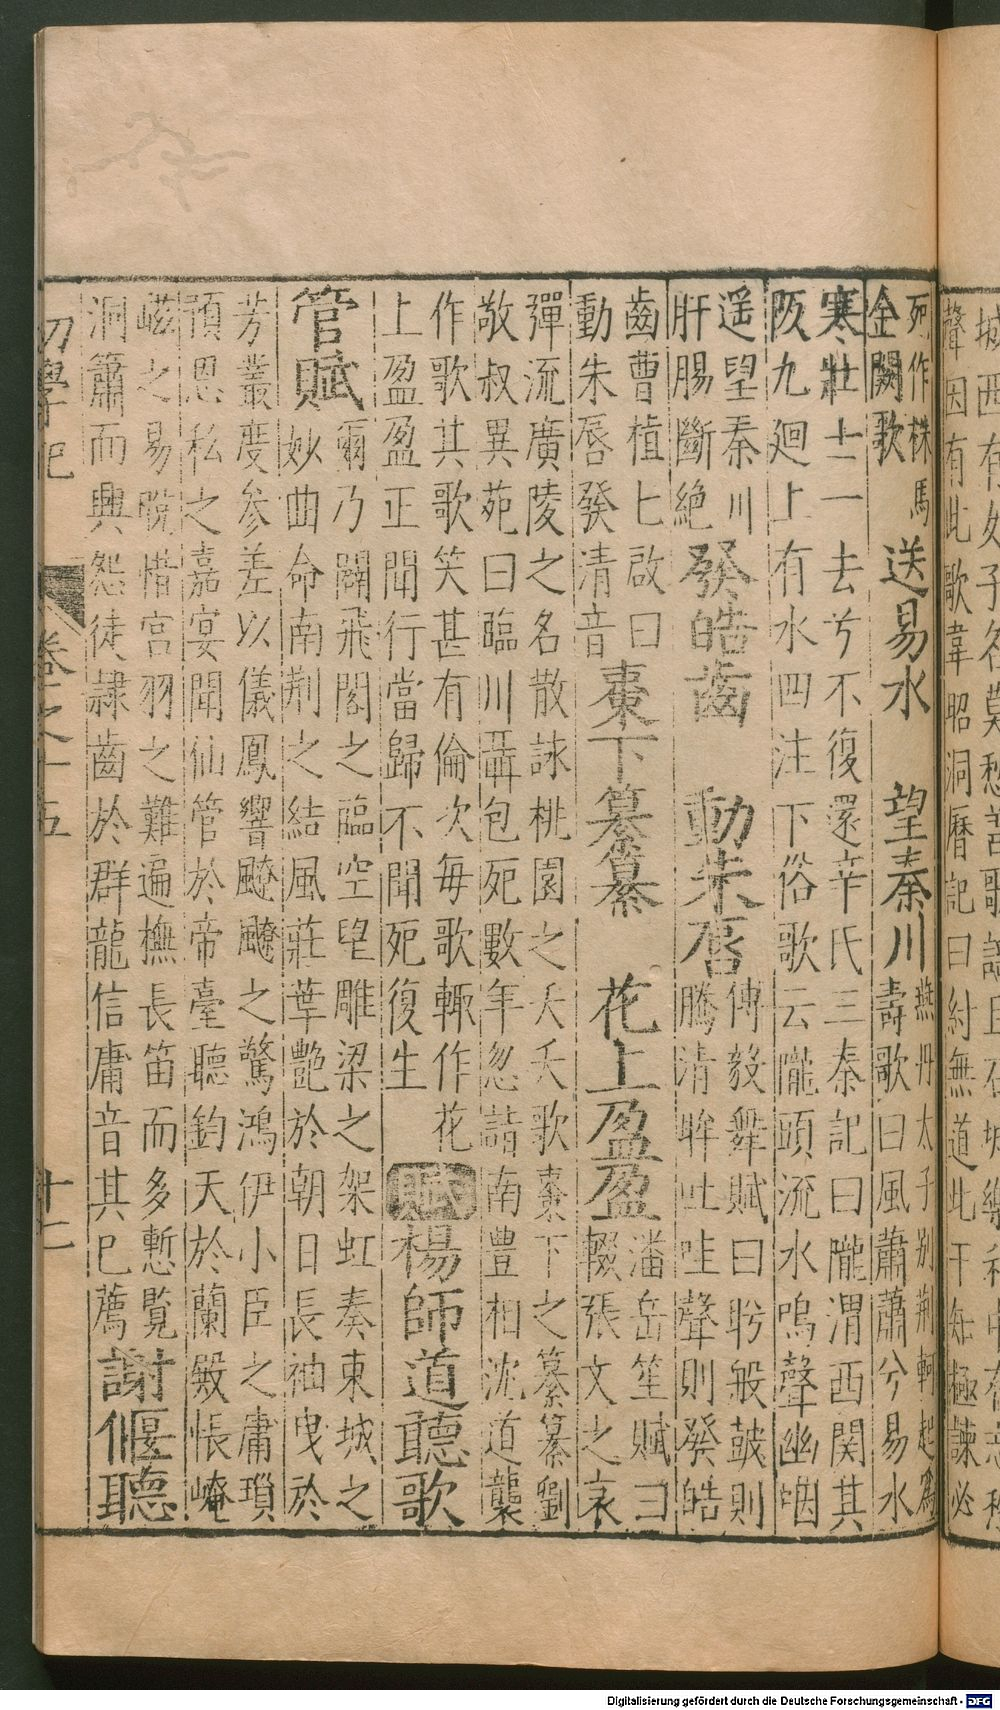 聲因有此歌韋昭洞曆記曰紂無道比干知極諫必
死作株馬
金闕歌
送易水　望秦川
燕丹太子別荆軻起爲
壽歌曰風蕭蕭兮易水
寒壯士一去兮不復還辛氏三秦記曰隴渭西関其
阪九廻上有水四注下俗歌云隴頭流水鳴聲幽咽
遥望秦川
肝腸斷絶
發皓齒　動朱唇
傅毅舞賦曰眄般鼓則
騰清眸吐哇聲則發皓
齒曹植七啟曰
動朱唇發清音
棗下纂纂　花上盈盈
潘岳笙賦曰
輟張文之哀
彈流廣陵之名散詠桃園之夭夭歌棗下之纂纂劉
敬叔異苑曰臨川聶包死數年忽詣南豊相沈道襲
作歌其歌笑甚有倫次毎歌輒作花
上盈盈正聞行當歸不聞死復生
賦　楊師道聽歌
管賦
爾乃闢飛閣之臨空望雕梁之架虹奏東城之
妙曲命南荆之結風莊華艷於朝日長袖曳於
芳叢度参差以儀鳳響飂飂之驚鴻伊小臣之庸瑣
預恩私之嘉宴聞仙管於帝臺聽鈞天於蘭殿悵崦
嵫之易晩惜宮羽之難遍撫長笛而多慙覧
洞簫而興怨徒隷齒於群龍信庸音其巳薦
謝偃聽
初學記　卷之十五　十二
Digitalisierung gefördert durch die Deutsche Forschungsgemeinschaft - DFG